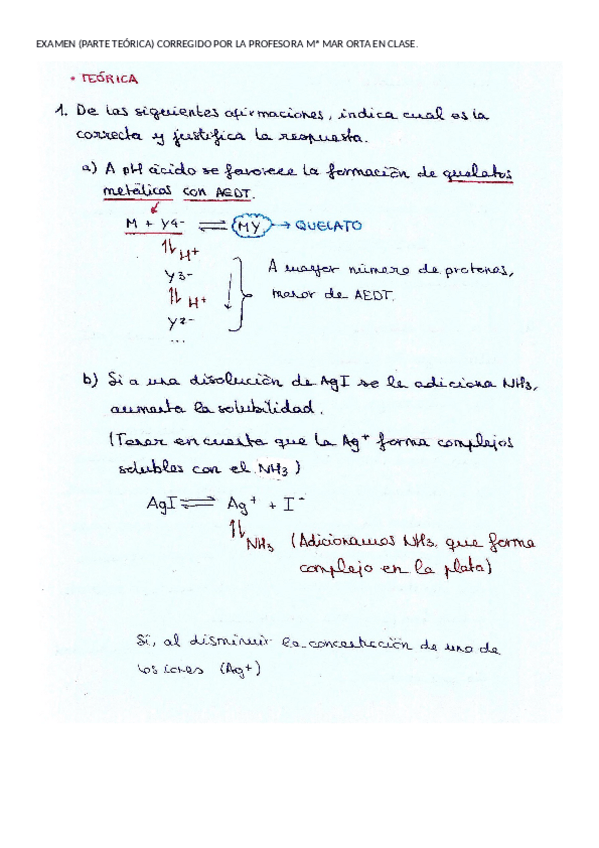 EXAMEN (PARTE TEÓRICA) CORREGIDO POR LA PROFESORA Mª MAR ORTA EN CLASE.
• TEÓRICA
1. De las siguientes afirmaciones, indica cual es la
correcta y justifica la respuesta.
a) A pH ácido se favorece la formación de quelatos
metálicos con AEDT.
M + Y4- ⇌ MY → QUELATO
⇅ H+
Y3-
⇅ H+
Y2-
...
A mayor número de protones,
menor de AEDT.
b) Si a una disolución de AgI se le adiciona NH3,
aumenta la solubilidad.
(Tener en cuenta que la Ag+ forma complejos
solubles con el NH3)
AgI ⇌ Ag+ + I-
⇅ NH3 (Adicionamos NH3, que forma
complejo en la plata)
Sí, al disminuir la concentración de uno de
los iones (Ag+)